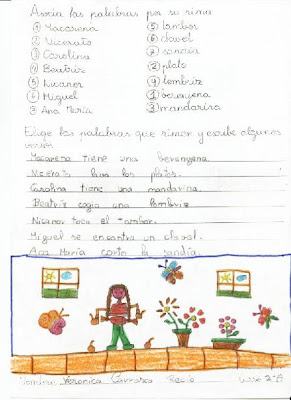 Asocia las palabras por su rima
① Macarena ⑤ tambor
② Nicerato ⑥ clavel
③ Carolina ⑦ sandía
④ Beatriz ② plato
⑤ Nicanor ④ lombriz
⑥ Miguel ① berenjena
⑦ Ana María ③ mandarina
Elige las palabras que riman y escribe algunos
versos
Macarena tiene una berenjena.
Nicerato lava los platos.
Carolina tiene una mandarina.
Beatriz cogía una lombriz
Nicanor toca el tambor.
Miguel se encontra un clavel.
Ana María corta la sandía.
Nombre Veronica Carrasco Recio Curso 2º